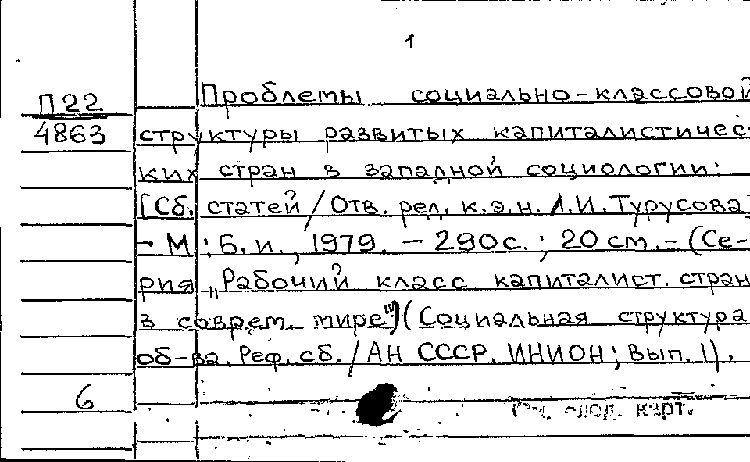 1
П22
4863
Проблемы социально-классовой
структуры развитых капиталистичес
ких стран в западной социологии:
[Сб. статей / Отв. ред. к.э.н. Л.И. Турусова]
- М.: Б. и., 1979. - 290 с.; 20 см. - (Се-
рия "Рабочий класс капиталист. стран
в соврем. мире") (Социальная структура
об-ва. Реф. сб. / АН СССР. ИНИОН; Вып. 1).
6
См. след. карт.